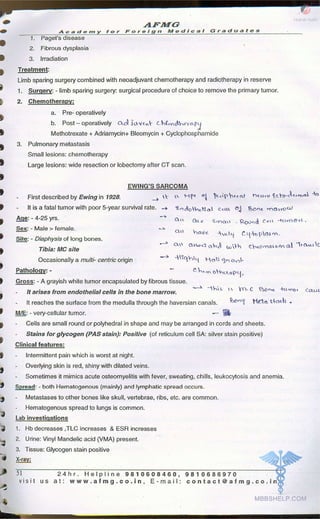 AFMG
Academy for Foreign Medical Graduates
1. Paget's disease
2. Fibrous dysplasia
3. Irradiation
Treatment:
Limb sparing surgery combined with neoadjuvant chemotherapy and radiotherapy in reserve
1. Surgery: - limb sparing surgery: surgical procedure of choice to remove the primary tumor.
2. Chemotherapy:
a. Pre- operatively
b. Post – operatively adjuvent chemotherapy
Methotrexate + Adriamycin+ Bleomycin + Cyclophosphamide
3. Pulmonary metastasis
Small lesions: chemotherapy
Large lesions: wide resection or lobectomy after CT scan.
EWING'S SARCOMA
- First described by Ewing in 1928. → It is type of peripheral neuro ectodermal
- It is a fatal tumor with poor 5-year survival rate. → Endothelial cells of Bone marrow
Age: - 4-25 yrs. → all are small Round cell tumors.
Sex: - Male > female. → all have
Site: - Diaphysis of long bones.
Tibia: MC site → with chromosomal
Occasionally a multi- centric origin → Highly Malignant
Pathology: - Chemotherapy.
Gross: - A grayish white tumor encapsulated by fibrous tissue.
- It arises from endothelial cells in the bone marrow. → This is M.C Bone tumor
- It reaches the surface from the medulla through the haversian canals. Bony Metastasis.
M/E: - very-cellular tumor.
- Cells are small round or polyhedral in shape and may be arranged in cords and sheets.
- Stains for glycogen (PAS stain): Positive (of reticulum cell SA: silver stain positive)
Clinical features:
- Intermittent pain which is worst at night.
- Overlying skin is red, shiny with dilated veins.
- Sometimes it mimics acute osteomyelitis with fever, sweating, chills, leukocytosis and anemia.
Spread: - both Hematogenous (mainly) and lymphatic spread occurs.
- Metastases to other bones like skull, vertebrae, ribs, etc. are common.
- Hematogenous spread to lungs is common.
Lab investigations
1. Hb decreases ,TLC increases & ESR increases
2. Urine: Vinyl Mandelic acid (VMA) present.
3. Tissue: Glycogen stain positive
X-ray:
31 24hr. Helpline 9810608468, 9810686970
visit us at: www.afmg.co.in, E-mail: contact@afmg.co.in
MBBSHELP.COM